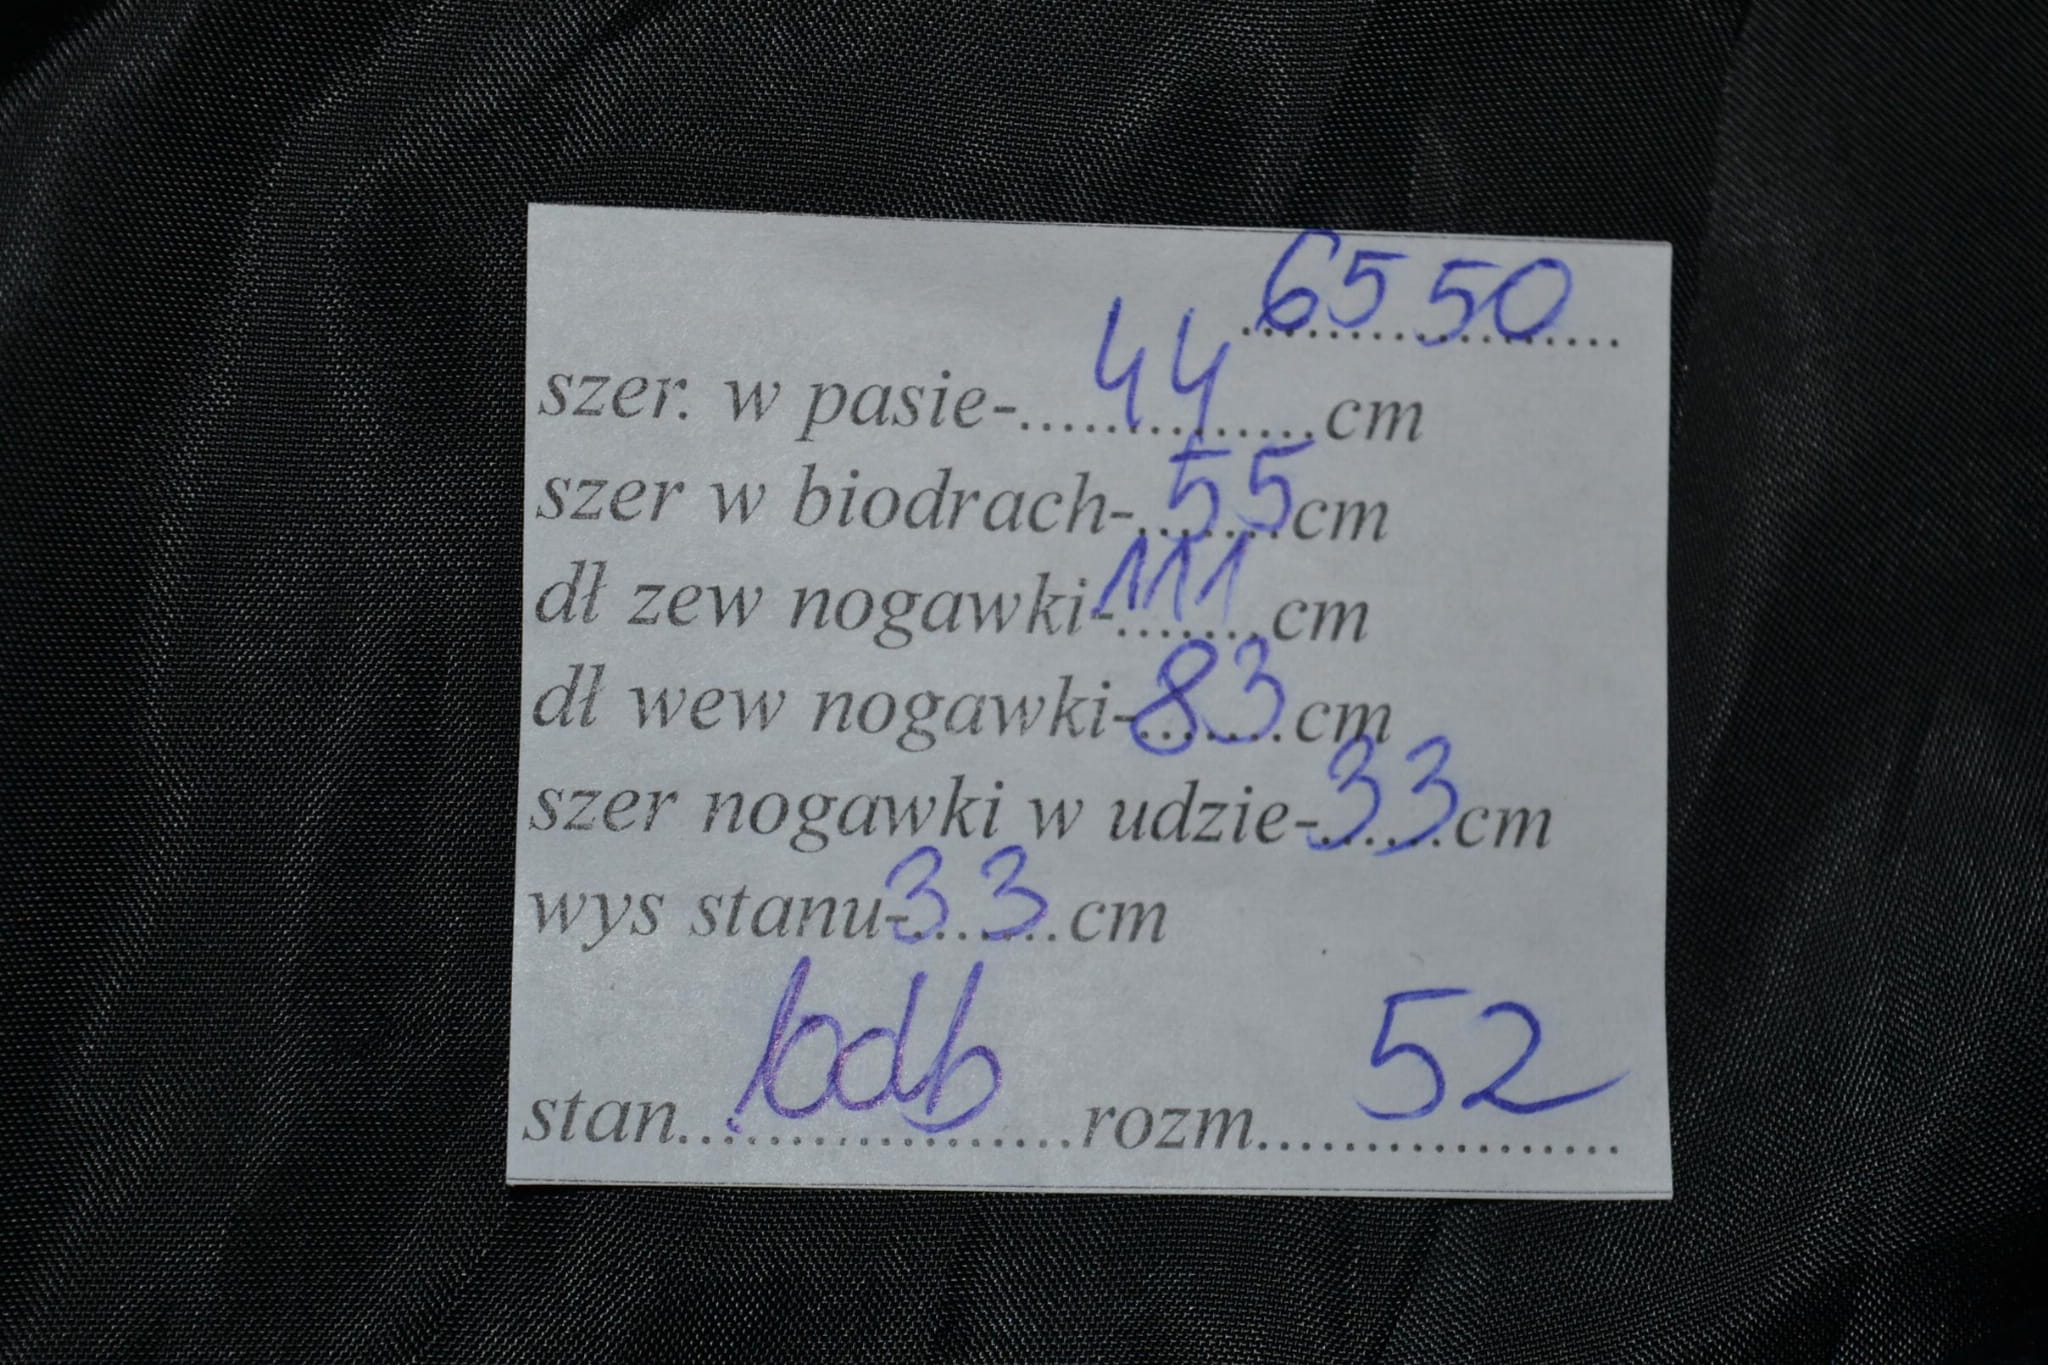 6550
szer. w pasie-.....44.....cm
szer w biodrach-..55..cm
dł zew nogawki-111....cm
dł wew nogawki-83....cm
szer nogawki w udzie-33..cm
wys stanu-33..cm
stan....bdb....rozm....52....